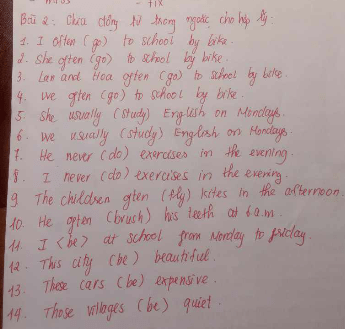 - fix
Bài 2: Chia động từ trong ngoặc cho hợp lý:
1. I often (go) to school by bike.
2. She often (go) to school by bike.
3. Lan and Hoa often (go) to school by bike.
4. we often (go) to school by bike.
5. She usually (study) English on Mondays.
6. we usually (study) English on Mondays.
7. He never (do) exercises in the evening.
8. I never (do) exercises in the evening.
9 The children often (fly) kites in the afternoon.
10. He often (brush) his teeth at 6 a.m.
11. I <be> at school from Monday to friday.
12. This city (be) beautiful.
13. These cars (be) expensive.
14. Those villages (be) quiet.